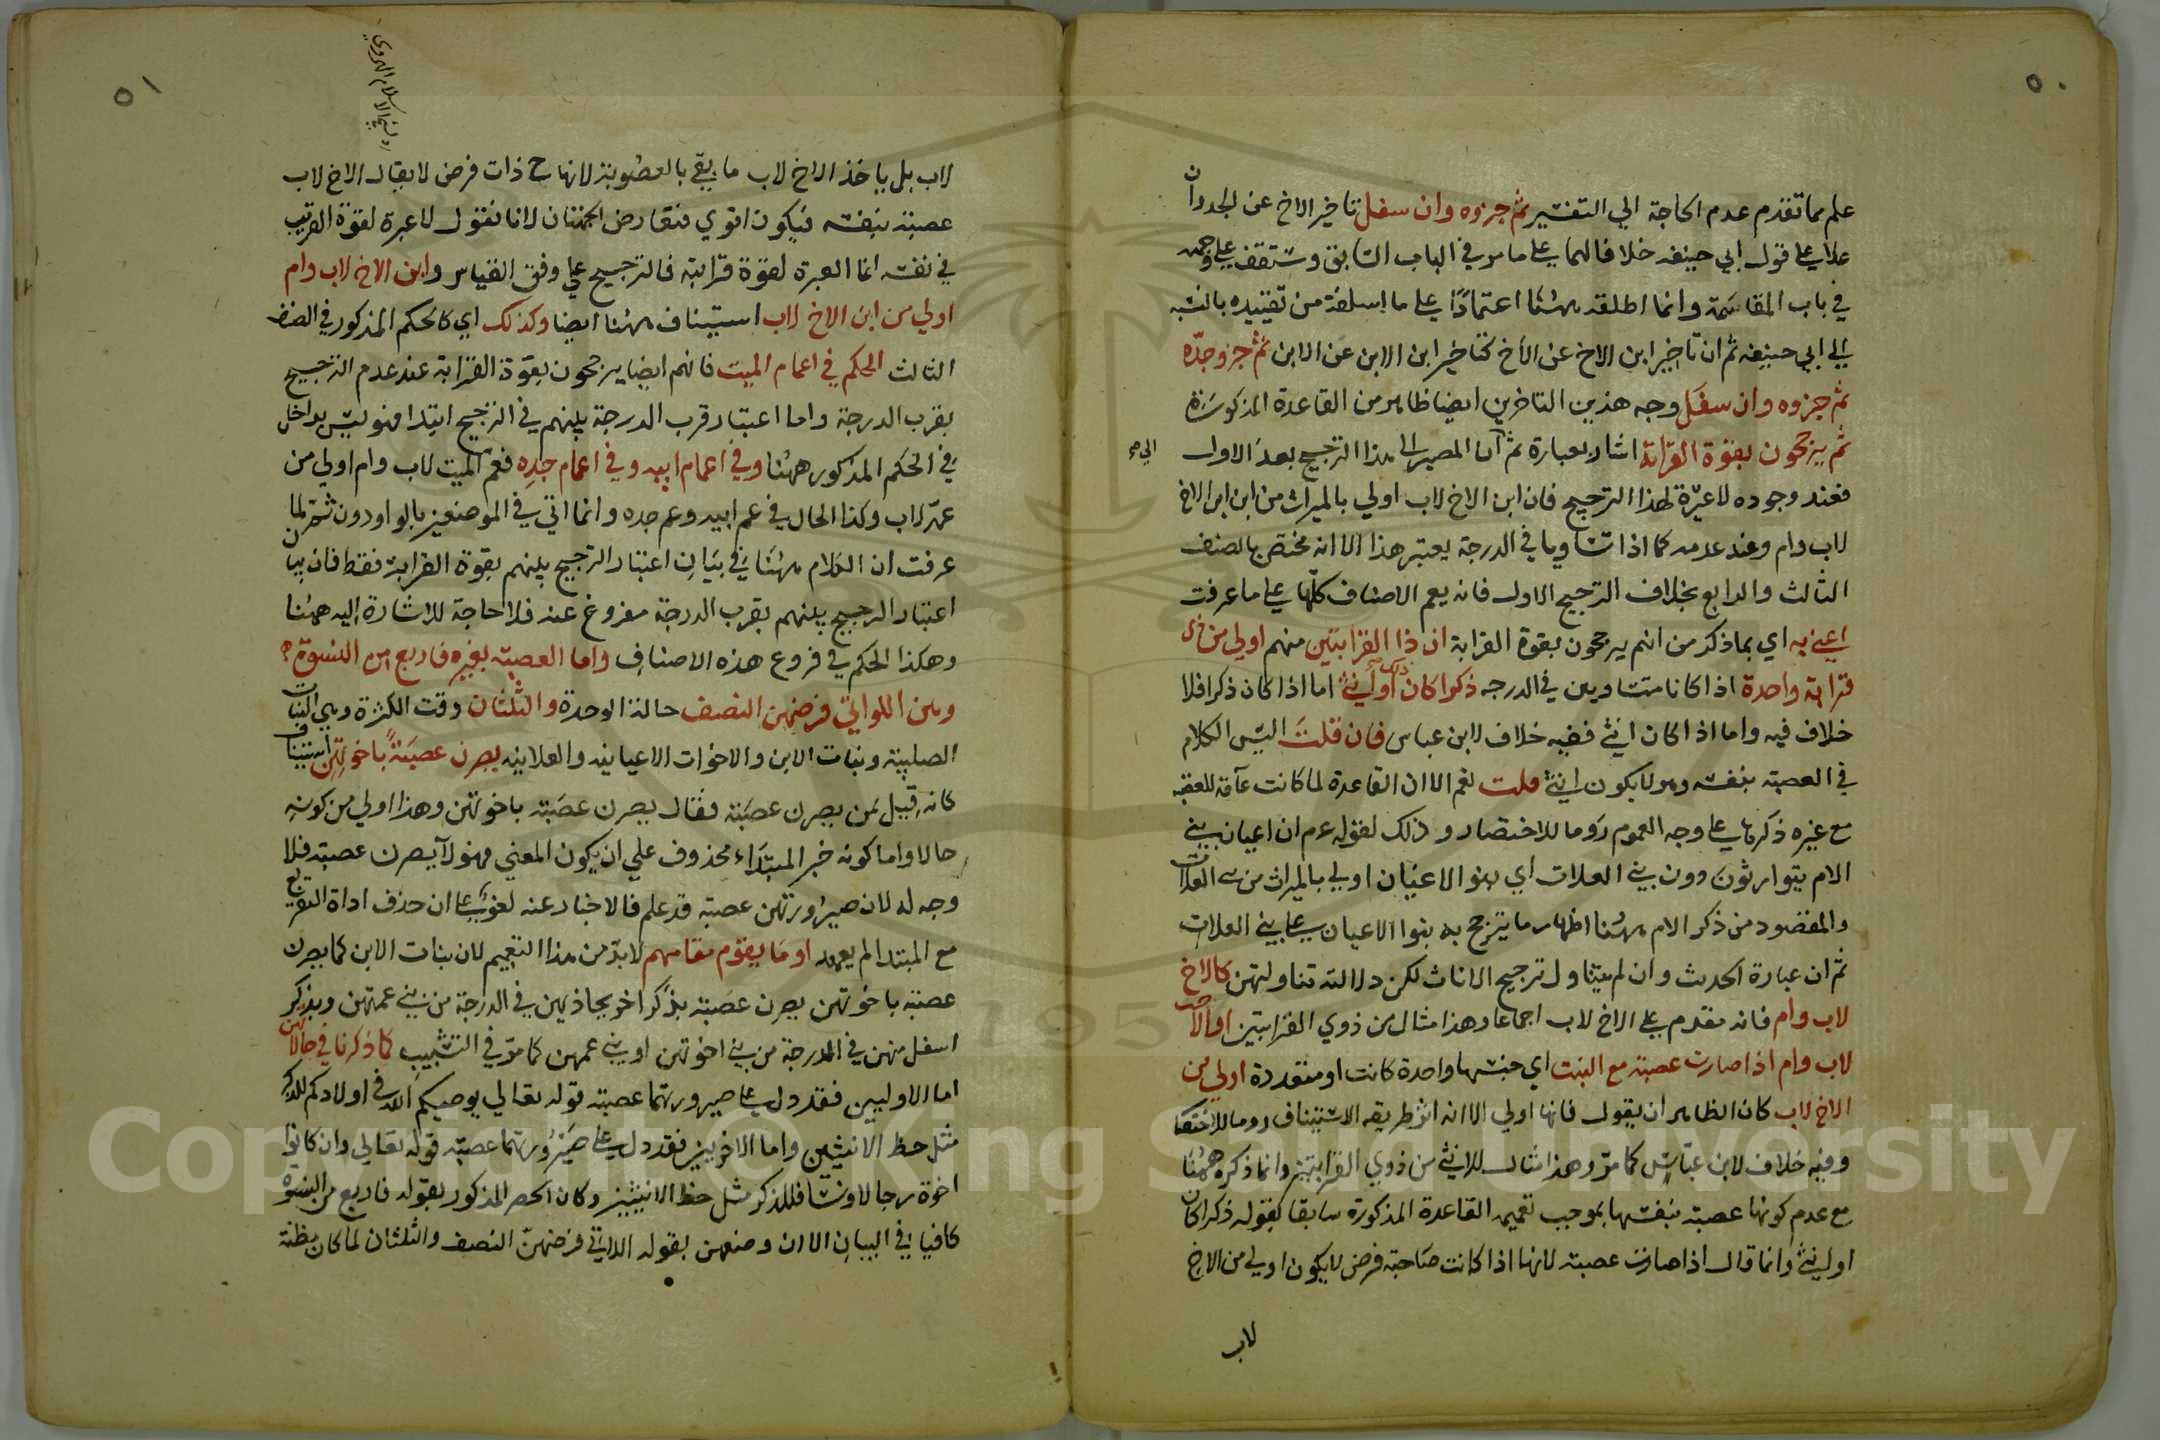 ٥٠
علم مما تقدم عدم الحاجة الي التفسير ثم جزوه وان سفل تاخير الاخ عن الجد وان
علا علي قول ابي حنيفه خلافا لهما علي ما مر في الباب السابق وستقف علي وجهه
في باب المقاسمة وانما اطلقه ههنا اعتمادًا علي ما اسلفه من تقييده بالنسبه
الي ابي حنيفه ثم ان تاخير ابن الاخ عن الأخ كتاخير ابن الابن عن الابن ثم جزو جدّه
ثم جزوه وان سفَل وجه هذين التاخرين ايضا ظاهر من القاعدة المذكورة
ثم يرجحون بقوة القرابة اشار بعبارة ثم الي ان المصير الي هذا الترجيح بعد الاول
فعند وجوده لا عبرة لهذا الترجيح فان ابن الاخ لاب اولي بالميراث من ابن ابن الاخ
لاب وام وعند عدمه كما اذا تساويا في الدرجة يعتبر هذا الا انه مختص بالصنف
الثالث والرابع بخلاف الترجيح الاول فانه يعم الاصناف كلها علي ما عرفت
اعني به اي بما ذكر من انهم يرجحون بقوة القرابة ان ذا القرابتين منهم اولي من ذي
قرابة واحدة اذا كانا متساويين في الدرجه ذكرا كان ذلك او أنثي اما اذا كان ذكرا فلا
خلاف فيه واما اذا كان انثي ففيه خلاف لابن عباس فان قلتَ اليسَ الكلام
في العصبه بنفسه وهو لا يكون انثي قلت نعم الا ان القاعدة لما كانت عآمة للعصبة
مع غيره ذكرها علي وجه العموم رَوما للاختصار وذلك لقوله عم ان اعيان بني
الام يتوارثون دون بني العلات اي بنو الاعيان اولي بالميراث من بني العلات
والمقصود من ذكر الام ههنا اظهار ما يترجح به بنوا الاعيان علي بني العلات
ثم ان عبارة الحديث وان لم يتناول ترجيح الاناث لكن دلالته تتناولهن كالاخ
لاب وام فانه مقدم علي الاخ لاب اجماعا وهذا مثال من ذوي القرابتين او الاخت
لاب وام اذا صارت عصبة مع البنت اي جنسها واحدة كانت او متعددة اولي من
الاخ لاب كان الظاهر ان يقول فانها اولي الا انه اثر طريقه الاستيناف روما للاختصار
وفيه خلاف لابن عباس كما مرّ وهذا مثال للانثي من ذوي القرابتين وانما ذكره ههنا
مع عدم كونها عصبة بنفسها بموجب تعميمه القاعدة المذكورة سابقا كقوله ذكرا كان
او انثي وانما قال اذا صارت عصبه لانها اذا كانت صاحبة فرض لا يكون اولي من الاخ
لاب
٥١
شيخ الاسلام الهروي
لاب بل ياخذ الاخ لاب ما بقي بالعصوبة لانها ح ذات فرض لا يقال الاخ لاب
عصبة بنفسه فيكون اقوي فتعارض الجهتان لانا نقول لا عبرة لقوة القريب
في نفسه انما العبرة لقوة قرابته فالترجيح علي وفق القياس وابن الاخ لاب وام
اولي من ابن الاخ لاب استيناف ههنا ايضا وكذلك اي كالحكم المذكور في الصنف
الثالث الحكم في اعمام الميت فانهم ايضا يرجحون بقوة القرابة عند عدم الترجيح
بقرب الدرجة واما اعتبار قرب الدرجة بينهم في الترجيح ابتدا فهو ليس بداخل
في الحكم المذكور ههنا وفي اعمام ابيه وفي اعمام جده فعم الميت لاب وام اولي من
عمّ لاب وكذا الحال في عم ابيه وعم جده وانما اتي في الموضعين بالواو دون ثم لما
عرفت ان الكلام ههنا في بيان اعتبار الترجيح بينهم بقوة القرابة فقط فان بيان
اعتبار الترجيح بينهم بقرب الدرجة مفروغ عنه فلا حاجة للاشارة اليه ههنا
وهكذا الحكم في فروع هذه الاصناف واما العصبة بغيره فاربع من النسوة
وهن اللواتي فرضهن النصف حالة الوحدة والثلثان وقت الكثرة وهي البنات
الصلبية وبنات الابن والاخوات الاعيانيه والعلاتيه يصرن عصبةً باخوتهن استيناف
كانه قيل بمن يصرن عصبة فقال يصرن عصبة باخوتهن وهذا اولي من كونه
حالا واما كونه خبر المبتداء محذوف علي ان يكون المعني فهولآ يصرن عصبة فلا
وجه له لان صيرورتهن عصبة قد علم فالاخبار عنه لغو علي ان حذف اداة التفريع
مع المبتدا لم يعهد او ما يقوم مقامهم لابد من هذا التعميم لان بنات الابن كما يصرن
عصبة باخوتهن يصرن عصبة بذكر اخر يحاذيهن في الدرجة من بني عمتهن وبذكر
اسفل منهن في الدرجة من بني اخوتهن او بني عمهن كما مرّ في التشبيب كما ذكرنا في حالاتهن
اما الاوليين فقد دل علي صيرورتهما عصبة قوله تعالي يوصيكم الله في اولادكم للذكر
مثل حظ الانثيين واما الاخريين فقد دل علي صيرورتهما عصبة قوله تعالي وان كانوا
اخوة رجالا ونسا فللذكر مثل حظ الانثيين وكان الحصر المذكور بقوله فاربع من النسوة
كافيا في البيان الا ان وصفهن بقوله اللاتي فرضهنّ النصف والثلثان لما كان مظنة